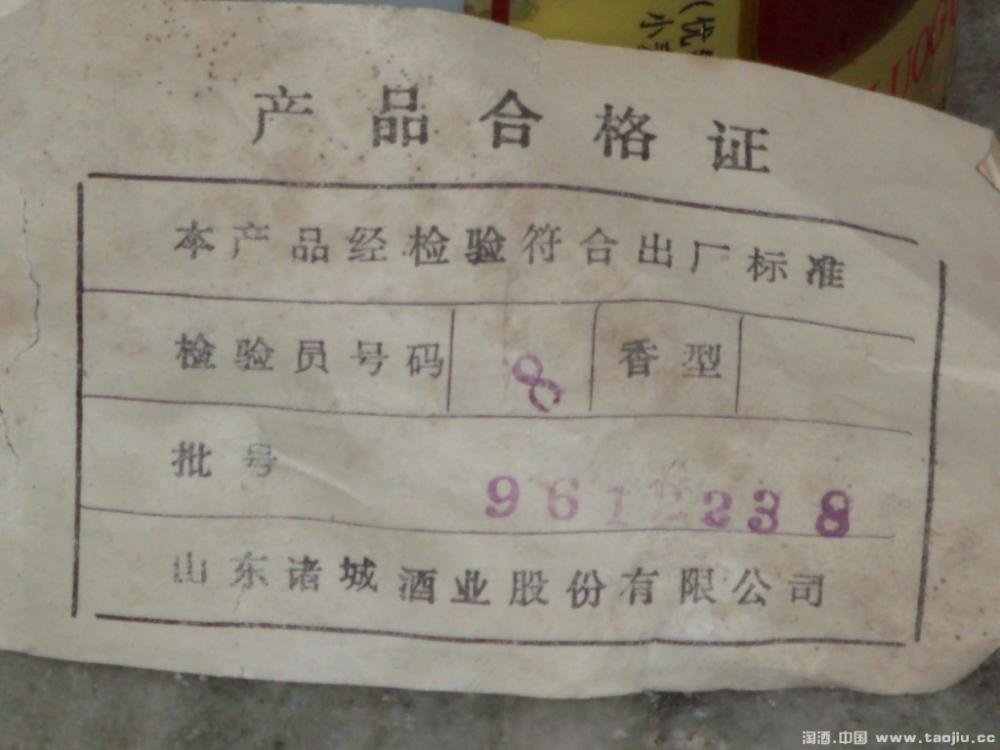 产品合格证
本产品经检验符合出厂标准
检验员号码 8 香型
批号 9612238
山东诸城酒业股份有限公司
淘酒.中国 www.taojiu.cc